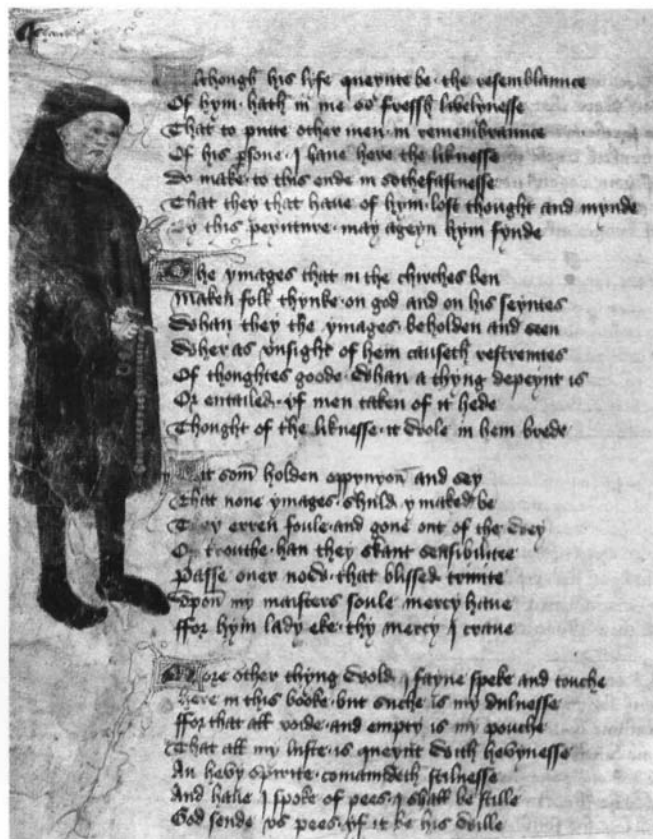 Although his lyfe queynte be · the resemblaunce
Of hym · hath in me so fressh livelynesse
That to putte other men · in remembraunce
Of his psone · I have here the liknesse
Do make · to this ende in sothefastnesse
That they that have of hym · lost thought and mynde
By this peynture · may ageyn hym fynde
The ymages that in the chirches ben
Maken folk thynke · on god and on his seyntes
Whan they the ymages · beholden and seen
Wher as unsight of hem causeth restreintes
Of thoughtes goode · whan a thyng depeynt is
Or entailed · yf men taken of it hede
Thought of the liknesse · it wole in hem brede
Yit som holden oppynyon and sey
That none ymages · shuld y maked be
They erren foule · and gone out of the wey
Of trouthe · han they skant sensibilitee
Passe over now · that blissed trinite
Upon my maisters soule mercy have
ffor hym lady eke · thy mercy I crave
More other thyng wold · I fayne speke and touche
Here in this booke · but suche is my dulnesse
ffor that all voide · and empty is my pouche
That all my luste · is queynt with hevynesse
An hevy spirite · comaundeth stilnesse
And have I spoke of pees · I shall be stille
God sende us pees · yf it be his wille